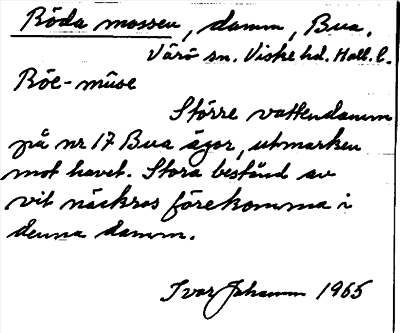 Röda mossen, damm, Bua.
Värö sn. Viske hd. Hall. l.
Röe-müse
Större vattendamm
på nr 17 Bua ägor, utmarken
mot havet. Stora bestånd av
vit näckros förekomma i
denna damm.
Ivar Johansson 1965